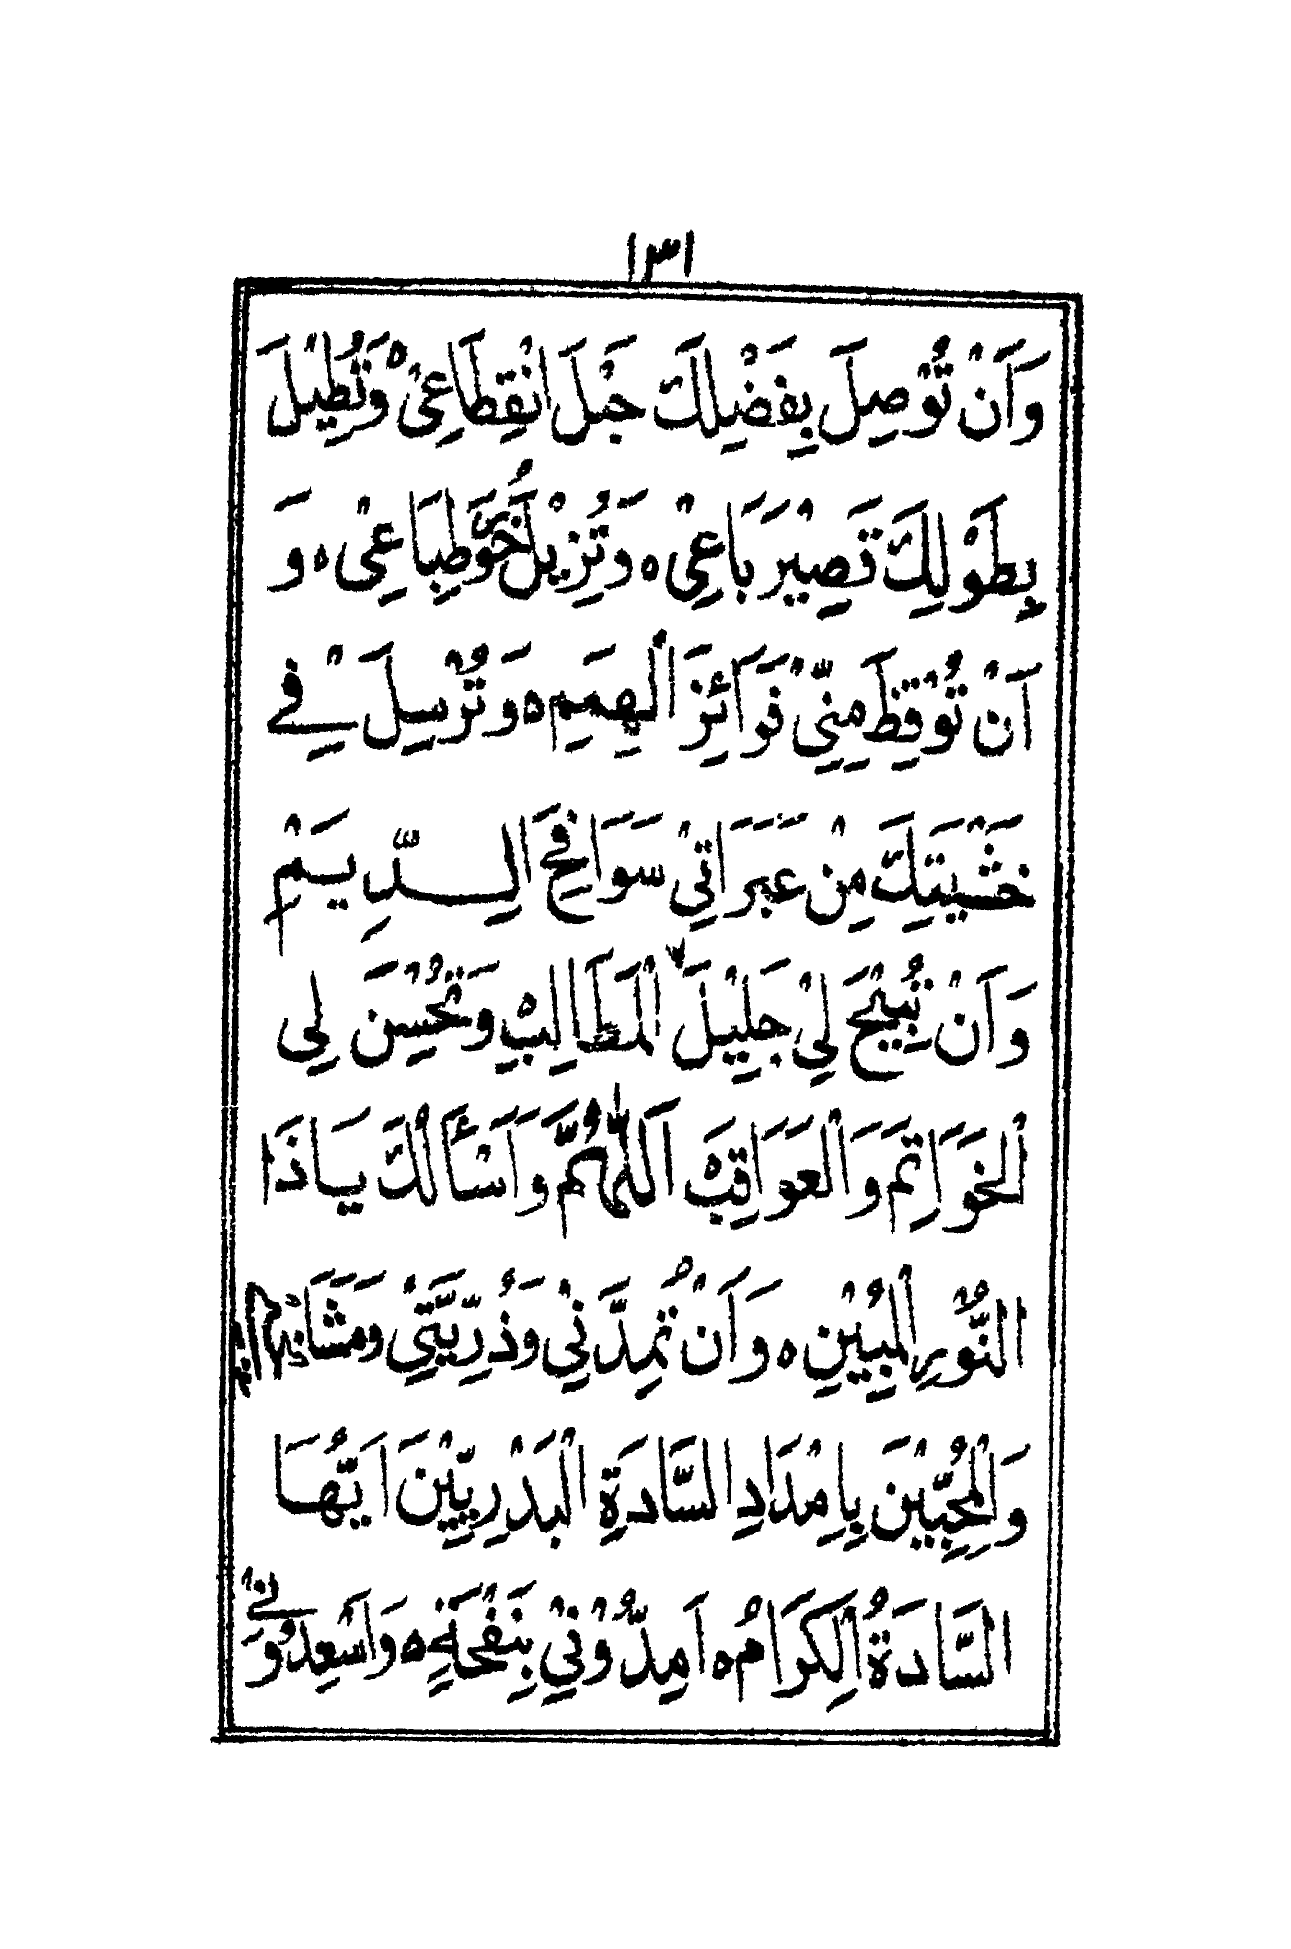 ١٣١
وَاَنْ تُوْصِلَ بِفَضْلِكَ حَبْلَ انْقِطَاعِىْ ه وَتُطِيْلَ
بِطَوْلِكَ قَصِيْرَ بَاعِىْ ه وَتُزِيْلَ طِبَاعِىْ ه وَ
اَنْ تُوْقِظَ مِنِّىْ فَوَائِزَ الْهِمَمِ ه وَتُرْسِلَ فِے
خَشْيَتِكَ مِنْ عَبَرَاتِىْ سَوَافِحَ الدِّيَمْ
وَاَنْ تُبِيْحَ لِىْ جَلِيْلَ الْمَطَالِبْ ه وَتُحْسِنَ لِى
الْخَوَاتِمَ وَالْعَوَاقِبْ ه اَللّٰهُمَّ وَاَسْأَلُكَ يَاذَا
النُّوْرِ الْمُبِيْنِ ه وَاَنْ تُمِدَّنِىْ وَذُرِّيَّتِىْ وَمَشَائِخِىْ
وَالْمُحِبِّيْنَ بِاِمْدَادِ السَّادَةِ الْبَدْرِيِّيْنَ اَيُّهَا
السَّادَةُ الْكِرَامُ ه اَمِدُّوْنِىْ بِنَفْحَةٍ ه وَاَسْعِدُوْنِىْ وَ